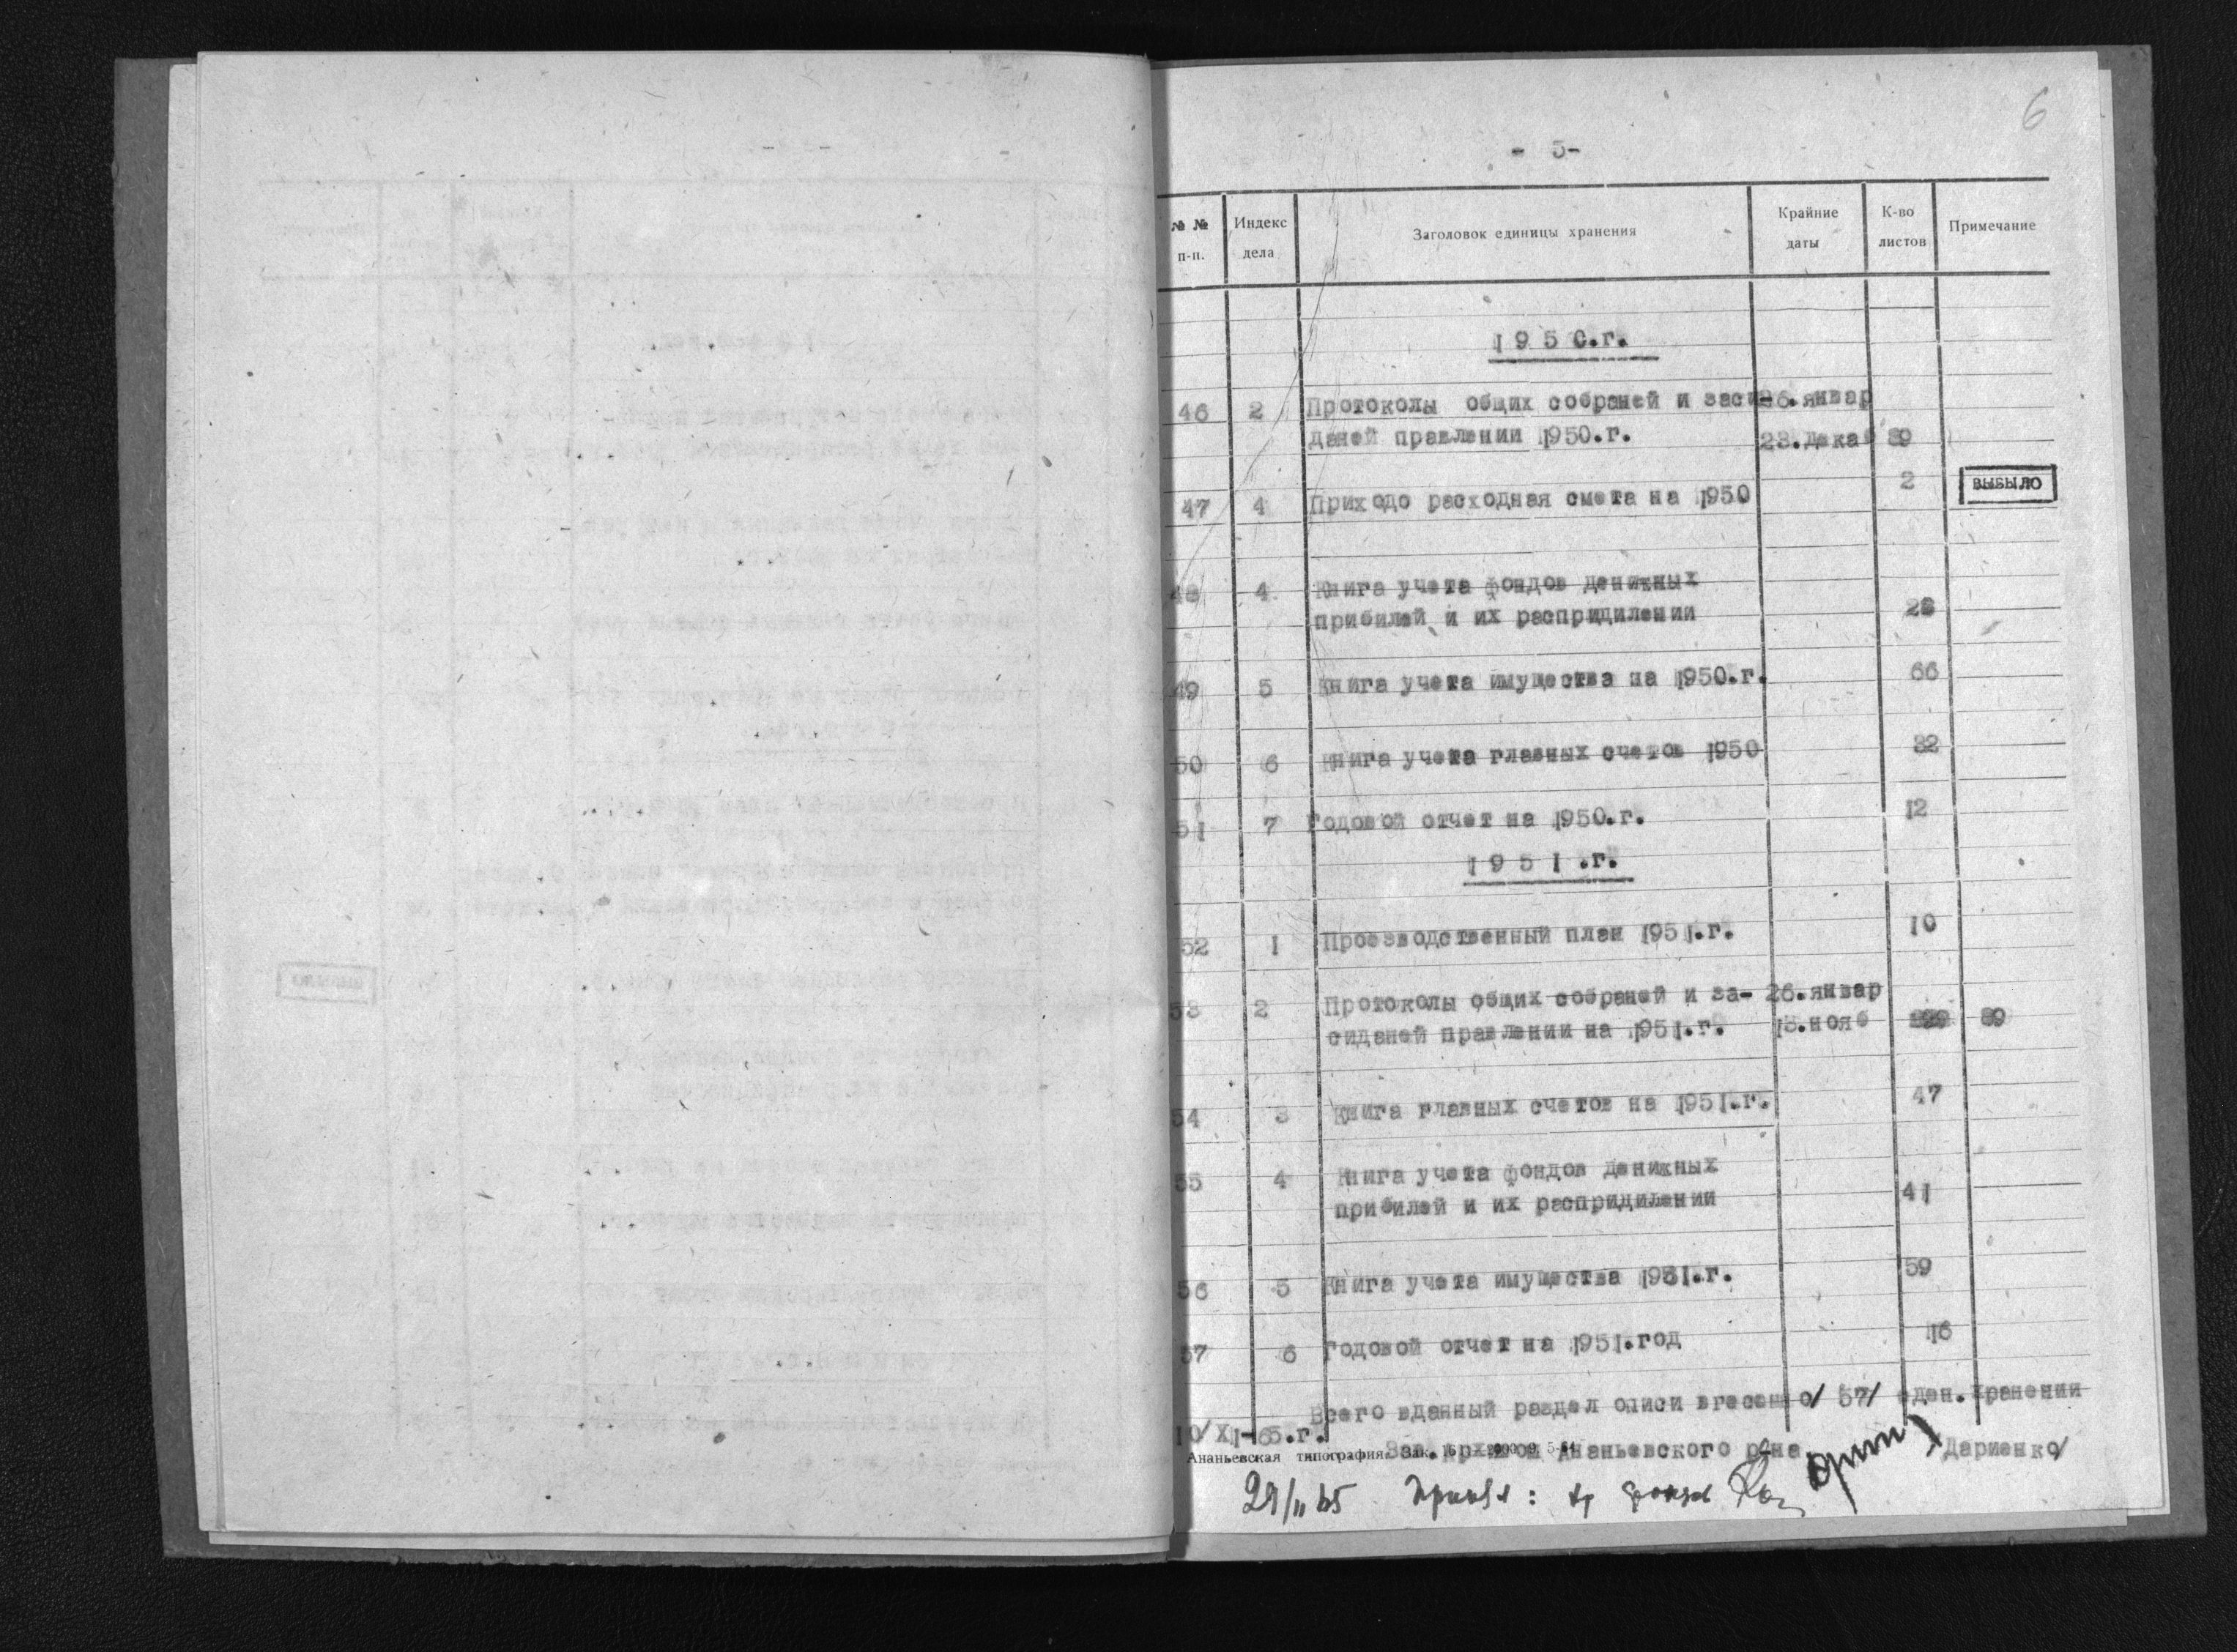 6
- 5-
№ № п-п. Индекс дела Заголовок единицы хранения Крайние даты К-во листов Примечание
1950.г.
46 2 Протоколы общих собраней и заси- 26.январ
даней правлении 1950.г. 23.дека 89
47 4 Приходо расходная смета на 1950 2 ВЫБЫЛО
48 4 Книга учета фондов денижных
прибилей и их распридилении 28
49 5 Книга учета имущества на 1950.г. 66
50 6 Книга учета главных счетов 1950 32
51 7 Годовой отчет на 1950.г. 12
1951.г.
52 1 Производственный план 1951.г. 10
53 2 Протоколы общих собраней и за- 26.январ
сиданей правлении на 1951.г. 15.нояб 89
54 3 Книга главных счетов на 1951.г. 47
55 4 Книга учета фондов денижных
прибилей и их распридилении 41
56 5 Книга учета имущества 1951.г. 59
57 6 Годовой отчет на 1951.год 16
Всего вданный раздел описи внесенно/ 57/ еден.хранении
10/XI-65.г.
Зав.архивом Ананьевского р-на /Дариенко/
Ананьевская типография
29/II 65